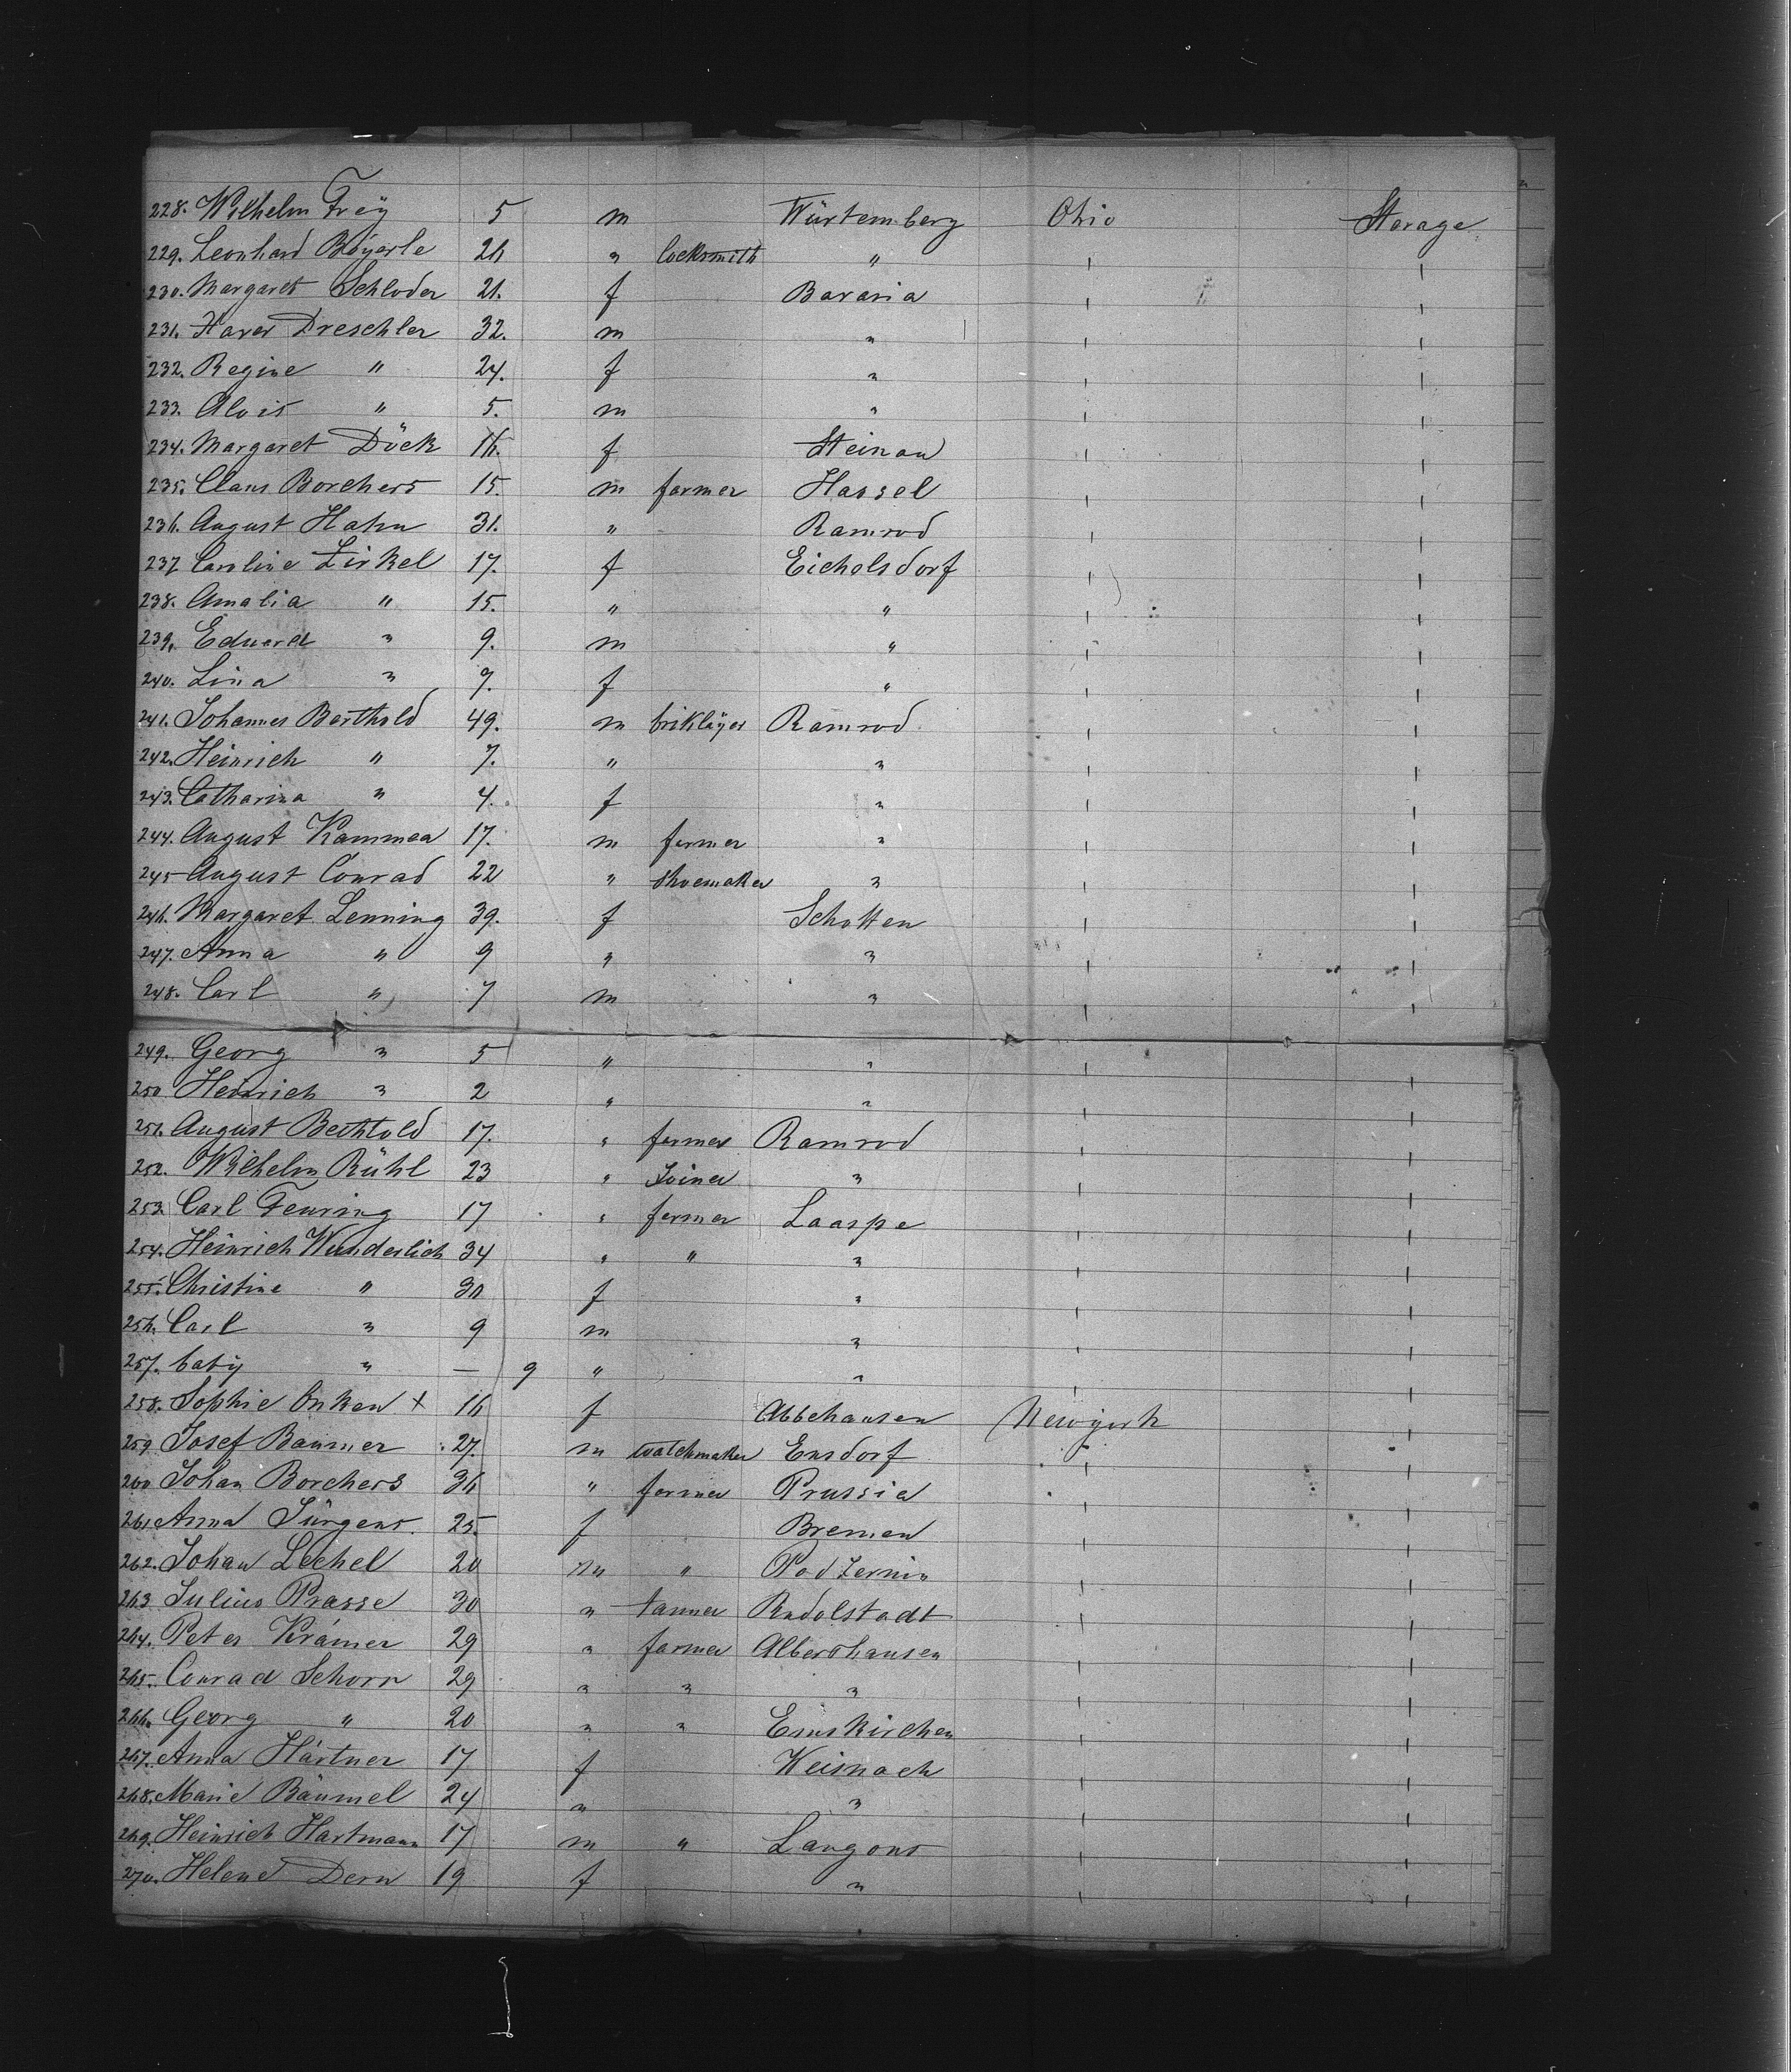 228. Wilhelm Frey 5 m Würtemberg Ohio Sterage
229. Leonhard Bayerle 26 " locksmith " ı ı
230. Margaret Schloder 21. f Bavaria ı ı
231. Xaver Dreschler 32. m " ı ı
232. Regine " 24. f " ı ı
233. Alois " 5. m " ı ı
234. Margaret Döck 16. f Steinau ı ı
235. Claus Borchers 15. m farmer Hassel ı ı
236. August Hahn 31. " Ramrod ı ı
237. Caroline Zirkel 17. f Eichelsdorf ı ı
238. Amalia " 15. " " ı ı
239. Eduard " 9. m " ı ı
240. Lina " 7. f " ı ı
241. Johannes Berthold 49. m brikläyer Ramrod ı ı
242. Heinrich " 7. " " ı ı
243. Catharina " 4. f " ı ı
244. August Kammea 17. m farmer " ı ı
245 August Conrad 22 " shoemaker " ı ı
246. Margaret Lenning 39. f Schotten ı ı
247. Anna " 9 " " ı ı
248. Carl " 7 m " ı ı
249. Georg " 5 " " ı ı
250 Heinrich " 2 " " ı ı
251. August Berthold 17. " farmer Ramrod ı ı
252. Wilhelm Rühl 23 " Joiner " ı ı
253. Carl Feuring 17 " farmer Laaspe ı ı
254. Heinrich Wunderlich 34 " " " ı ı
255. Christine " 30 f " ı ı
256. Carl " 9 m " ı ı
257. baby " — 9 " " ı ı
258. Sophie Onken x 16 f Abbehausen Newyork ı
259 Josef Baumer 27. m watchmaker Ensdorf ı ı
260 Johan Borchers 36 " farmer Prussia ı ı
261. Anna Jürgens. 25. f Bremen ı ı
262. Johan Lechel 20 m " Podzernin ı ı
263 Julius Prasse 30 " tanner Rudolstadt ı ı
264. Peter Krämer 29 " farmer Albershausen ı ı
265. Conrad Schorr 29 " " " ı ı
266. Georg " 20 " " Emskirchen ı ı
267. Anna Härtner 17 f Weisnach ı ı
268. Marie Bäumel 24 " " ı ı
269. Heinrich Hartmann 17 m " Langons ı ı
270. Helene Dern 19 f " ı ı